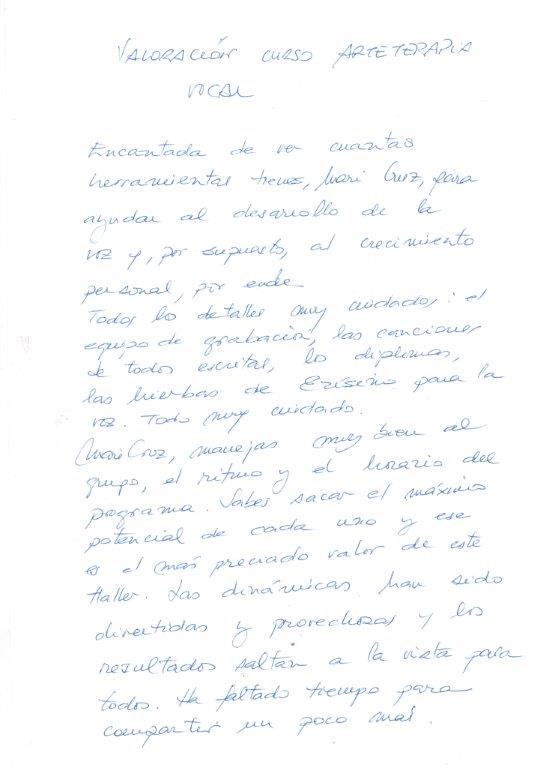 VALORACIÓN CURSO ARTETERAPIA
VOCAL
Encantada de ver cuantas
herramientas tienes, Mari Cruz, para
ayudar al desarrollo de la
voz y, por supuesto, al crecimiento
personal, por ende
Todos lo detalles muy cuidados: el
equipo de grabación, las canciones
de todos escritas, los diplomas,
las hierbas de Erísimo para la
voz. Todo muy cuidado.
Mari Cruz, manejas muy bien al
grupo, el ritmo y el horario del
programa. Sabes sacar el máximo
potencial de cada uno y ese
es el más preciado valor de este
taller. Las dinámicas han sido
divertidas y provechosas y los
resultados saltan a la vista para
todos. Ha faltado tiempo para
compartir un poco más.